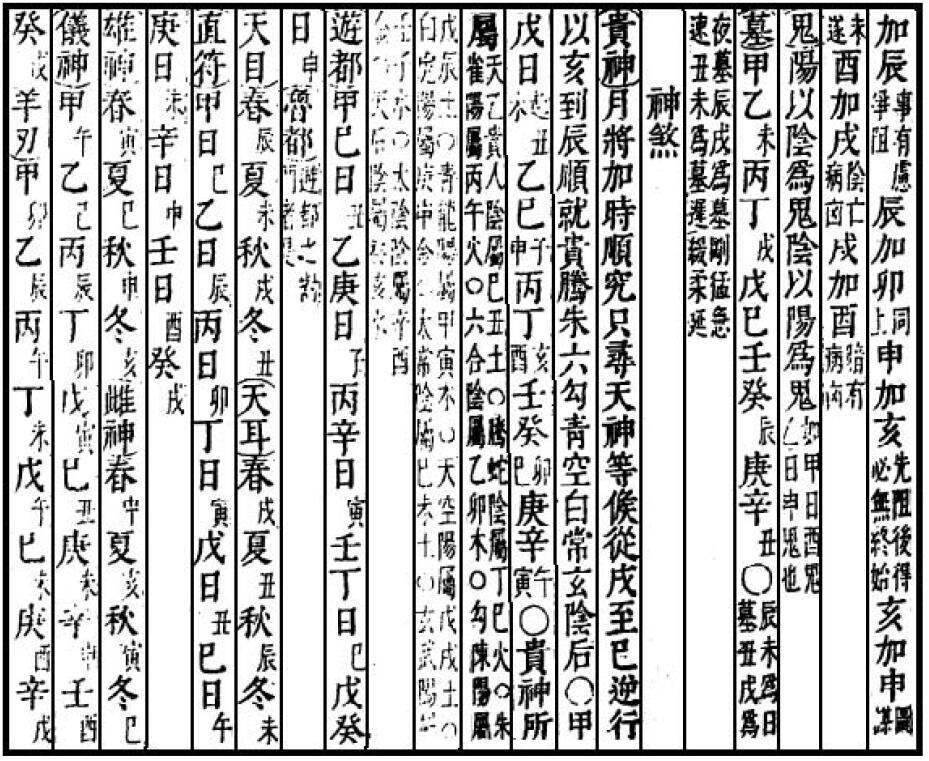 加辰事有慮爭阻辰加卯同上申加亥先阻後得必無終始亥加申圖謀
未遂酉加戌陰亡病凶戌加酉暗有病凶
鬼陽以陰為鬼陰以陽為鬼如甲日酉鬼乙日申鬼也
墓甲乙未丙丁戌戊己壬癸辰庚辛丑○辰未為日墓丑戌為
夜墓辰戌為墓剛猛急速丑未為墓遲緩柔延
神煞
貴神月將加時順究只尋天神等候從戌至巳逆行
以亥到辰順就貴騰朱六勾青空白常玄陰后○甲
戊日起丑未乙己子申丙丁亥酉壬癸卯巳庚辛午寅○貴神所
屬天乙貴人陰屬己丑土○騰蛇陰屬丁巳火○朱雀陽屬丙午火○六合陰屬乙卯木○勾陳陽屬
戊辰土○青龍陽屬甲寅木○天空陽屬戊戌土○白虎陽屬庚申金○太常陰屬己未土○玄武陽屬
壬子水○太陰陰屬辛酉金天后陰屬癸亥水
遊都甲己日丑乙庚日子丙辛日寅壬丁日巳戊癸
日申魯都遊都之對
天目春辰夏未秋戌冬丑天耳春戌夏丑秋辰冬未
直符甲日巳乙日辰丙日卯丁日寅戊日丑己日午
庚日未辛日申壬日酉癸戌
雄神春寅夏巳秋申冬亥雌神春申夏亥秋寅冬巳
儀神甲午乙巳丙辰丁卯戊寅己丑庚未辛申壬酉
癸戌羊刃甲卯乙辰丙午丁未戊午己未庚酉辛戌